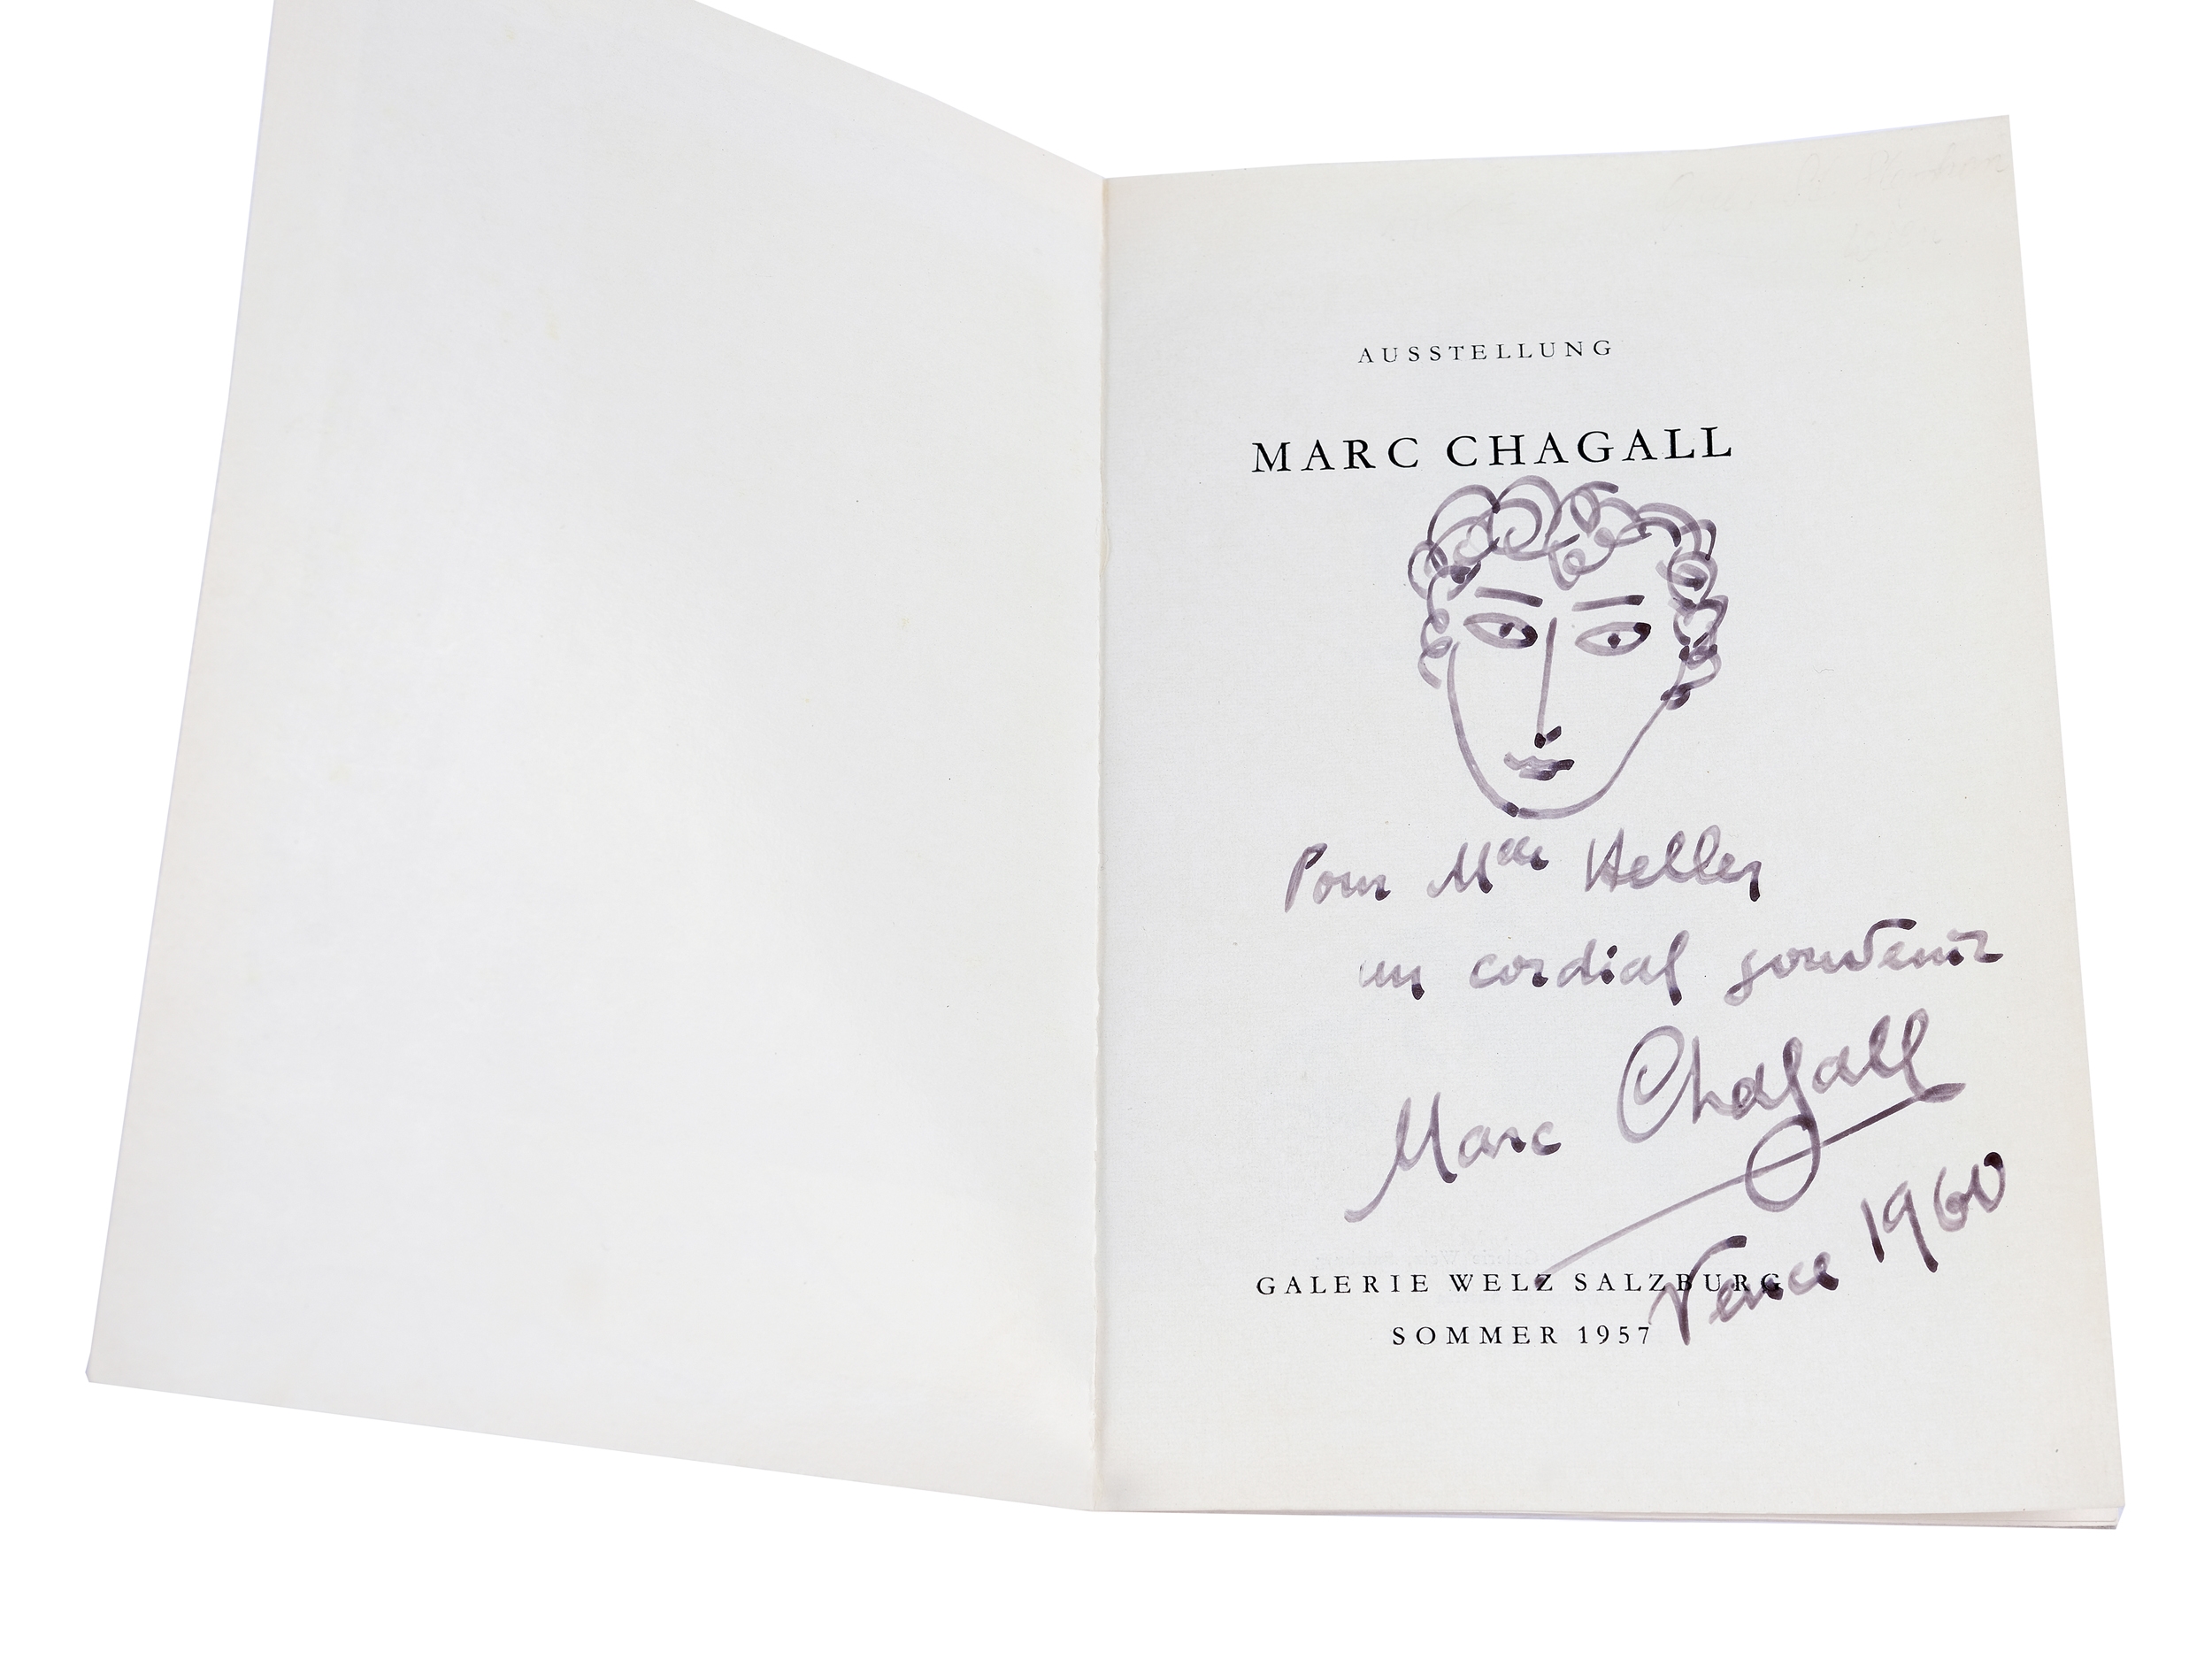 AUSSTELLUNG
MARC CHAGALL
Pour Mlle Heller
un cordial souvenir
Marc Chagall
Vence 1960
GALERIE WELZ SALZBURG
SOMMER 1957